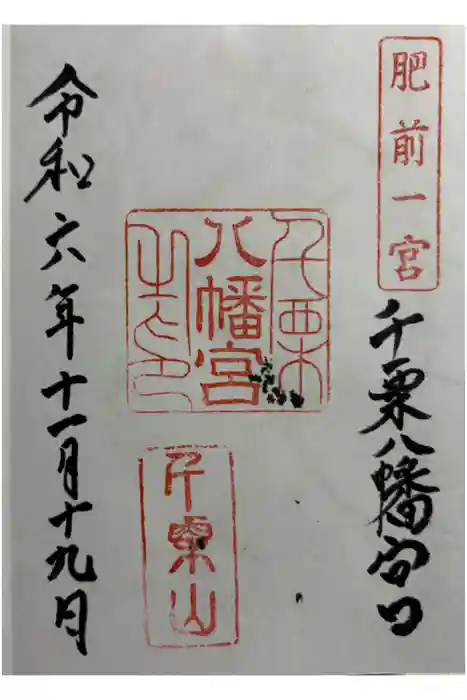 肥前一宮
千栗八幡宮
千栗八幡宮之印
千栗山
令和六年十一月十九日